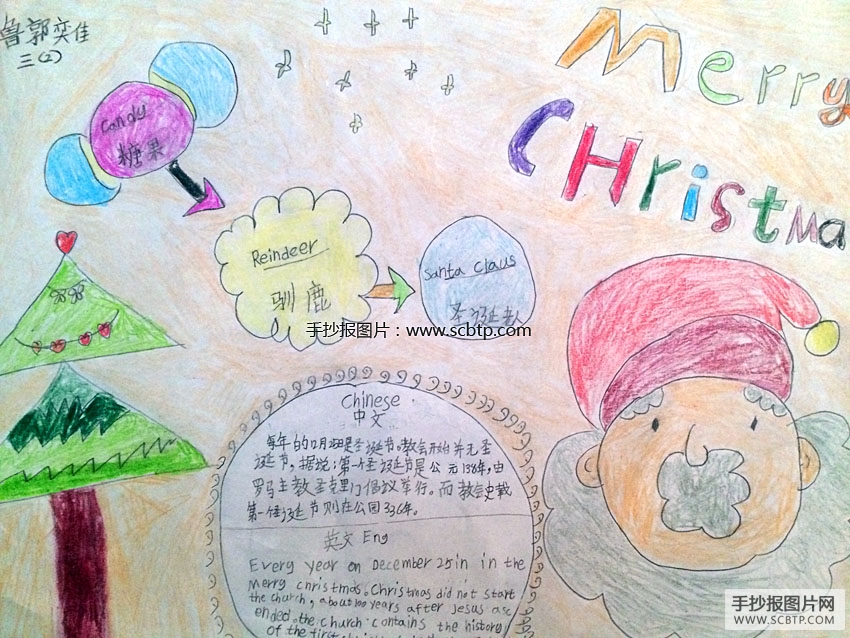 鲁郭奕佳
三(2)
Merry
CHristma
Candy
糖果
Reindeer
驯鹿
Santa Claus
圣诞老人
手抄报图片：www.scbtp.com
Chinese
中文
每年的12月25日是圣诞节。教会开始并无圣
诞节，据说：第一个圣诞节是公元138年，由
罗马主教圣克里门倡议举行。而教会史载
第一个圣诞节则在公园336年。
英文 Eng
Every year on December 25in in the
Merry christmas. Christmas did not start
the church, about 100 years after Jesus asc
ended. the church contains the history
of the first
手抄报图片网
WWW.SCBTP.COM